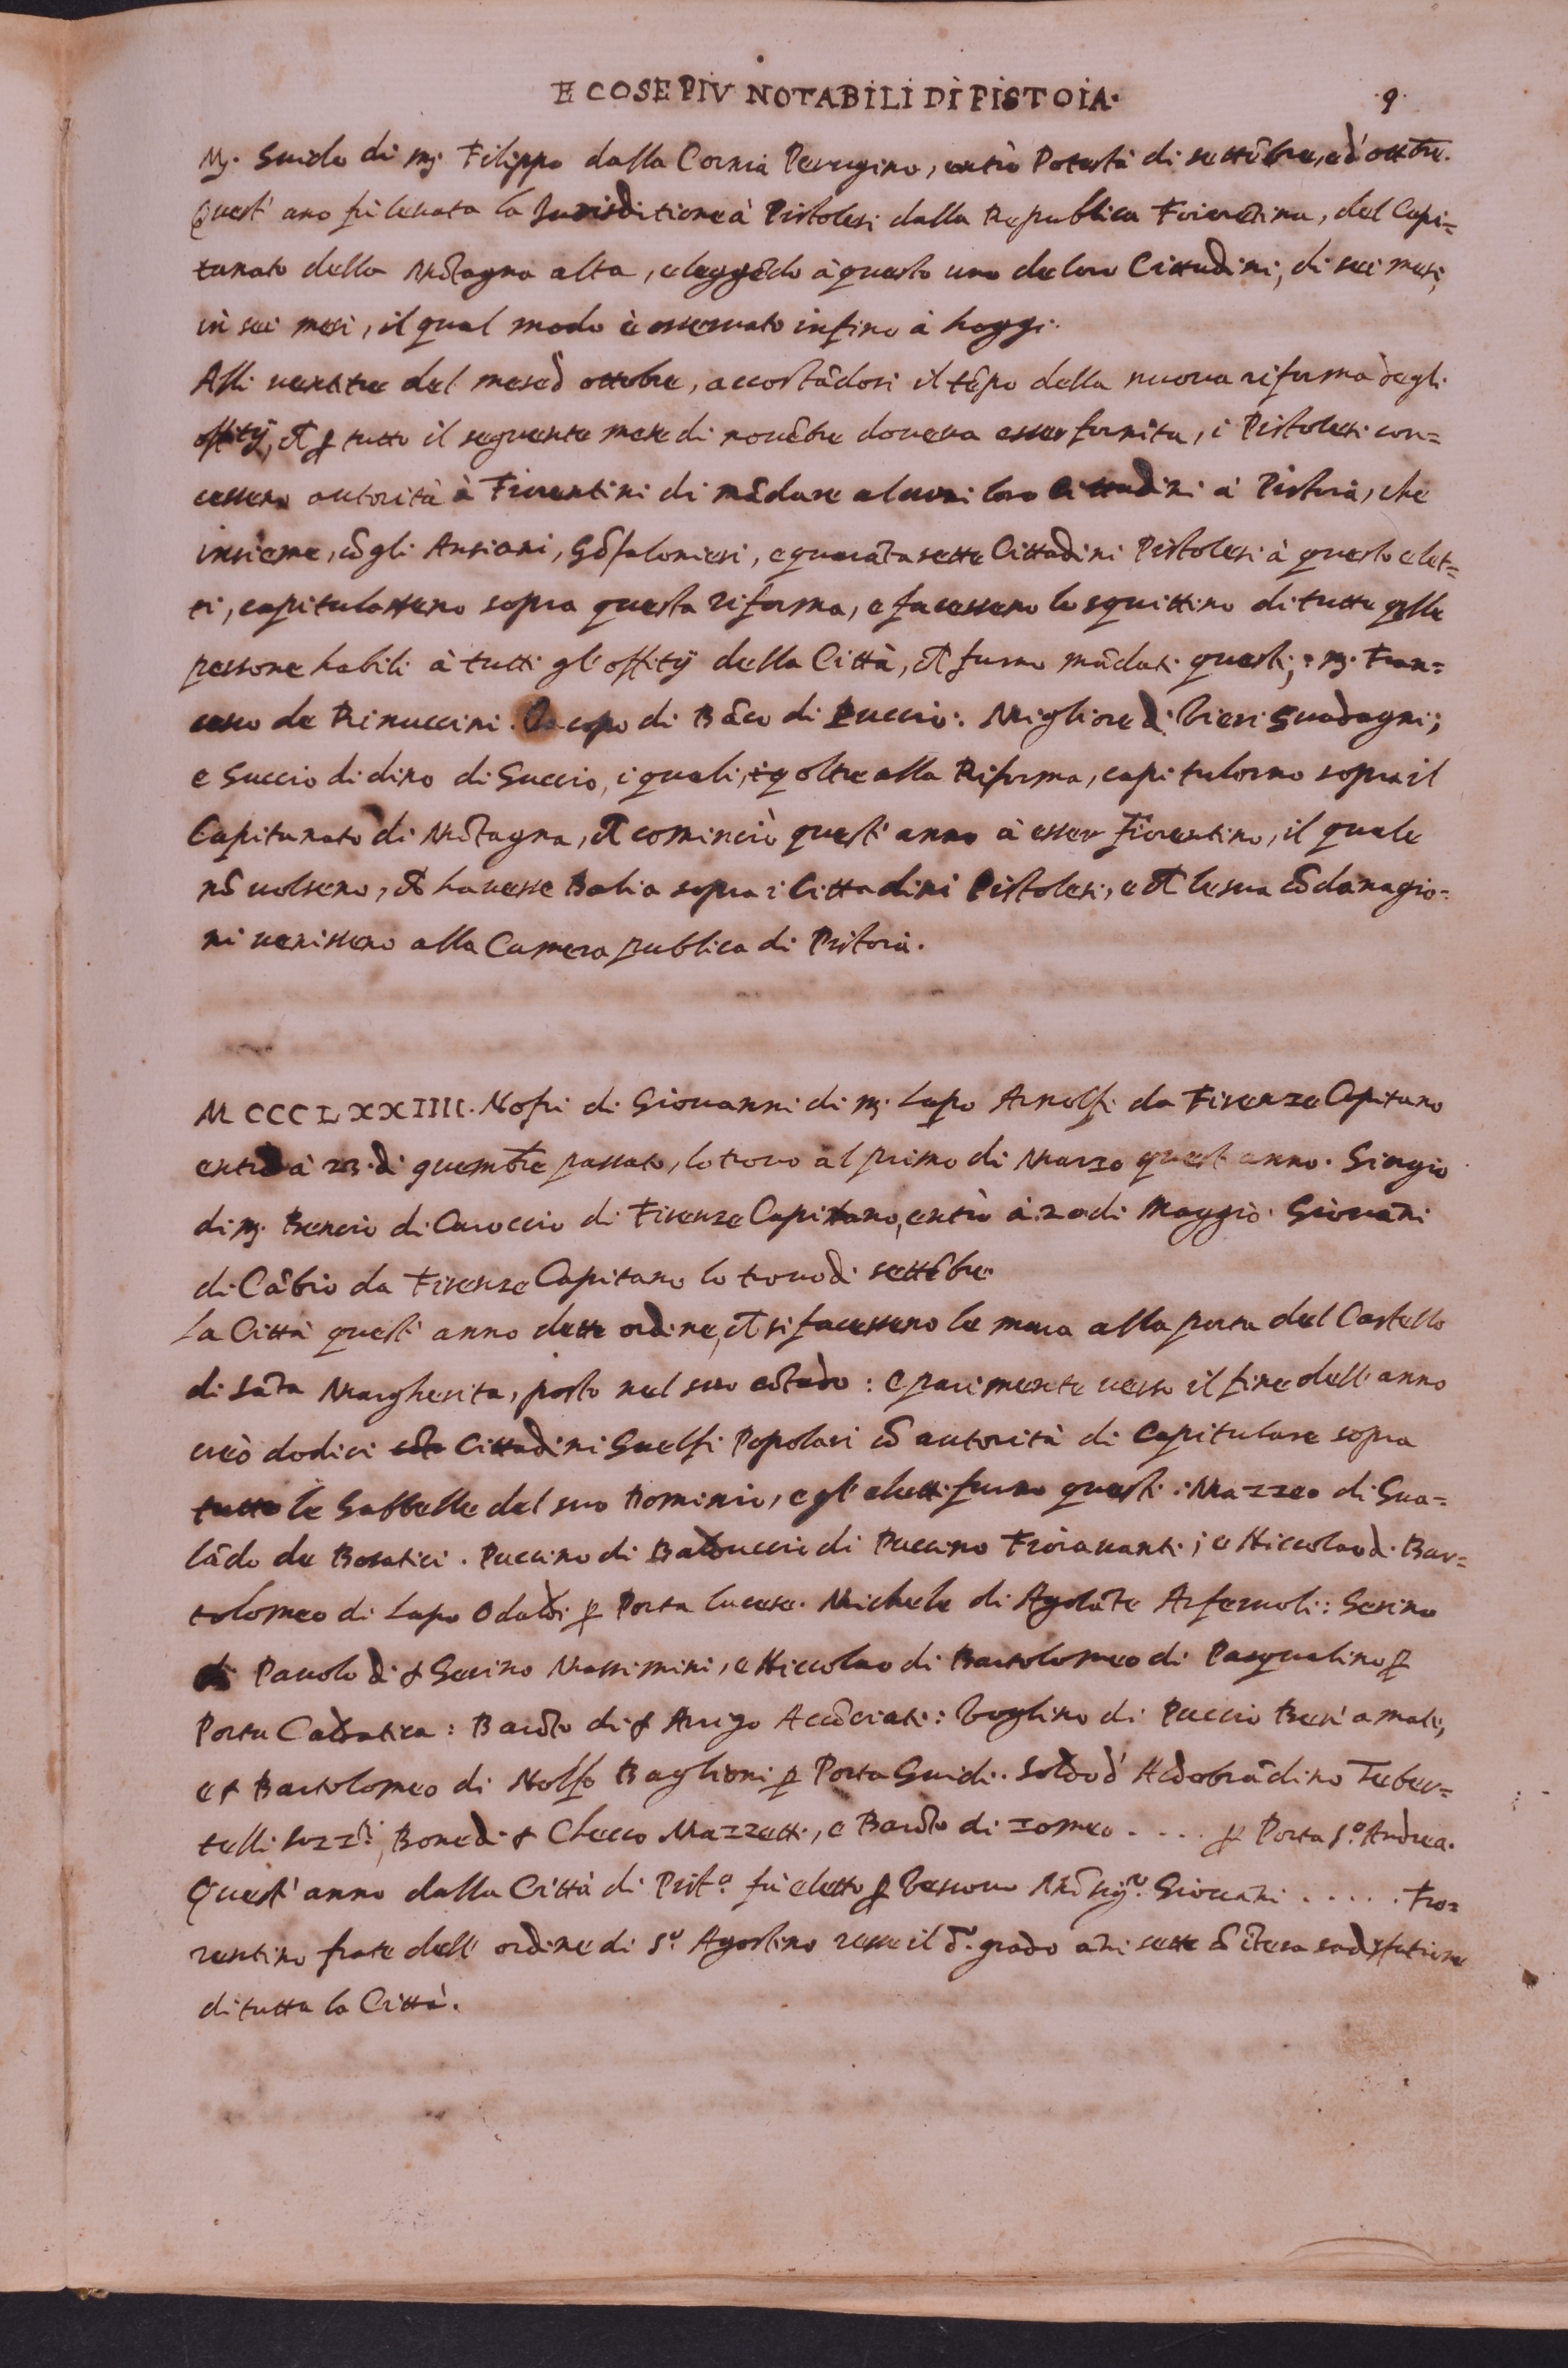 E COSE PIV NOTABILI DI PISTOIA. 9.
Mj. Guido di mj. Filippo dalla Cornia Perugino, entrò Potestà di settēbre, ed'ottre.
Quest' ano fù levata la Jurisditione à Pistolesi dalla Republica Fiorētina, del Capi=
tanato della Mōtagna alta, eleggēdo à questo uno de loro Cittadini, di sei mesi,
in sei mesi, il qual modo è osservato infino à hoggi.
Alli ventitre del mese d ottobre, accostādosi il tēpo della nuova riforma degli
offitij, ch̄ p tutto il seguente mese di novēbre doveva esser fornita, i Pistolesi con=
cessero autorità à Fiorentini di mādare alcuni loro Cittadini à Pistoia, che
insieme, cō gli Ansiani, Gōfalonieri, e quarātasette Cittadini Pistolesi à questo elet=
ti, capitulasseno sopra questa riforma, e facesseno lo squittino di tutte qlle
persone habili à tutti gl'offitij della Città, ch̄ furno mādati questi; mj. Fran=
cesco de Rinuccini. Iacopo di Bāco di Puccio: Migliore di Vieri Guadagni;
e Guccio di dino di Guccio, i quali, oltre alla Riforma, capitulorno sopra il
Capitanato di Mōtagna, ch̄ cominciò quest' anno à esser Fiorentino, il quale
nō volseno, ch̄ havesse Balia sopra i Cittadini Pistolesi, e ch̄ le sua cōdanagio=
ni venisseno alla Camera publica di Pistoia.
MCCCLXXIIII. Nofri di Giovanni di mj. Lapo Arnolfi da Firenze Capitano
entrò à 23. di 9vembre passato, lo trovo al primo di Marzo quest' anno. Giorgio
di mj. Bencio di Caroccio di Firenze Capitano, entrò à 20 di Maggio. Giovāni
di Cābio da Firenze Capitano lo trovo di settēbre.
La Città quest' anno dette ordine, ch̄ si facesseno le mura alla porta del Castello
di Sāta Margherita, posto nel suo cōtado: e parimente verso il fine dell'anno
creò dodici Cittadini Guelfi Popolari cō autorità di Capitulare sopra
tutte le Gabbelle del suo Dominio, e gl' eletti furno questi: Mazzeo di Gua=
lādo de Bosatici. Puccino di Balduccio di Puccino Fioravanti; e Niccolao di Bar=
tolomeo di Lapo Odaldi p Porta lucese. Michele di Agolāte Arferuoli: Gerino
Pavolo di ser Gerino Massimini, e Niccolao di Bartolomeo di Pasqualino p
Porta Caldatica: Bartō di ser Arrigo Accōciati: Voglino di Puccio Buri a male,
e ser Bartolomeo di Nolfo Baglioni p Porta Guidi. Soldo d' Aldobrādino Teber=
telli Sozzi, Bone di ser Checco Mazzetti, e Bartō di Zomeo . . . . p Porta S.o Andrea.
Quest' anno dalla Città di Pist.a fù eletto p Vescovo Mōsig.re Giovāni . . . . . Fio=
rentino frate dell' ordine di S.o Agostino resse il d.o grado āni sette cō ītera sadisfatione
di tutta la Città.